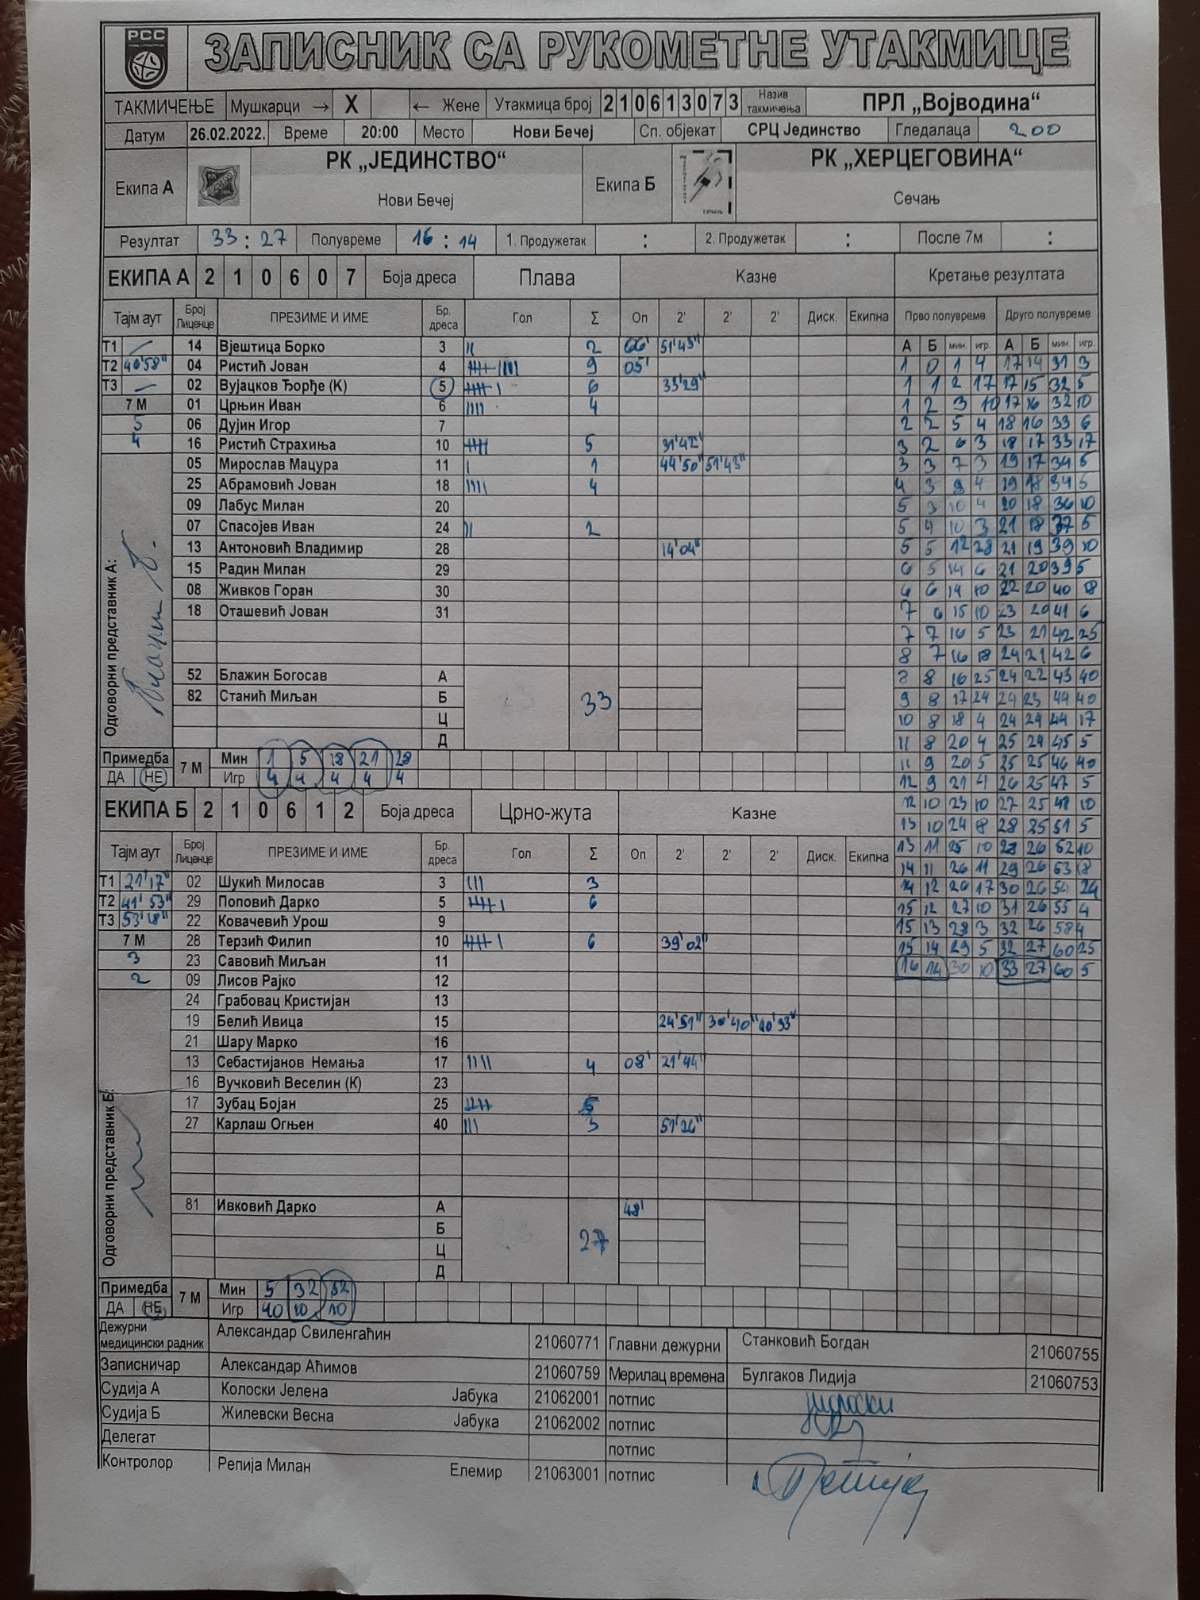 РСС
ЗАПИСНИК СА РУКОМЕТНЕ УТАКМИЦЕ
ТАКМИЧЕЊЕ Мушкарци → X ← Жене Утакмица број 210613073 Назив такмичења ПРЛ „Војводина“
Датум 26.02.2022. Време 20:00 Место Нови Бечеј Сп. објекат СРЦ Јединство Гледалаца 200
Екипа А РК „ЈЕДИНСТВО“ Нови Бечеј Екипа Б РК „ХЕРЦЕГОВИНА“ Сечањ
Резултат 33 : 27 Полувреме 16 : 14 1. Продужетак : 2. Продужетак : После 7м :
ЕКИПА А 2 1 0 6 0 7 Боја дреса Плава Казне Кретање резултата
Тајм аут Број Лиценце ПРЕЗИМЕ И ИМЕ Бр. дреса Гол Σ Оп 2' 2' 2' Диск. Екипна Прво полувреме Друго полувреме
А Б мин. игр. А Б мин. игр.
Т1 14 Вјештица Борко 3 2 51'43"
Т2 40'58" 04 Ристић Јован 4 9 05' 1 0 1 4 17 14 31 3
Т3 02 Вујацков Ђорђе (К) 5 6 33'29" 1 1 2 17 17 15 32 5
7 М 01 Црњин Иван 6 4 1 2 3 10 17 16 32 10
5 06 Дујин Игор 7 2 2 5 4 18 16 33 6
4 16 Ристић Страхиња 10 5 31'42" 3 2 6 3 18 17 33 17
05 Мирослав Мацура 11 1 44'50" 51'43" 3 3 7 3 19 17 34 5
25 Абрамовић Јован 18 4 4 3 9 4 19 18 34 5
09 Лабус Милан 20 5 3 10 4 20 18 36 10
07 Спасојев Иван 24 2 5 4 10 3 21 18 37 5
13 Антоновић Владимир 28 14'04" 5 5 12 28 21 19 39 10
15 Радин Милан 29 6 5 14 6 21 20 39 5
08 Живков Горан 30 6 6 14 10 22 20 40 18
18 Оташевић Јован 31 7 6 15 10 23 20 41 6
7 7 16 5 23 21 42 25
8 7 16 18 24 21 42 6
52 Блажин Богосав А 8 8 16 25 24 22 43 40
82 Станић Миљан Б 33 9 8 17 24 24 23 44 40
Ц 10 8 18 4 24 24 44 17
Д 11 8 20 4 25 24 45 5
Одговорни представник А:
Примедба 7 М Мин 1 5 18 21 28 11 9 20 5 25 25 46 40
ДА НЕ Игр 4 4 4 4 4 12 9 21 4 26 25 47 5
ЕКИПА Б 2 1 0 6 1 2 Боја дреса Црно-жута Казне 12 10 23 10 27 25 48 10
13 10 24 8 28 25 51 5
Тајм аут Број Лиценце ПРЕЗИМЕ И ИМЕ Бр. дреса Гол Σ Оп 2' 2' 2' Диск. Екипна 13 11 25 10 28 26 52 10
14 11 26 11 29 26 53 18
Т1 21'17" 02 Шукић Милосав 3 3 14 12 26 17 30 26 54 24
Т2 41'53" 29 Поповић Дарко 5 6 15 12 27 10 31 26 55 4
Т3 53'18" 22 Ковачевић Урош 9 15 13 28 3 32 26 58 4
7 М 28 Терзић Филип 10 6 39'02" 15 14 29 5 32 27 60 25
3 23 Савовић Миљан 11 16 14 30 10 33 27 60 5
2 09 Лисов Рајко 12
24 Грабовац Кристијан 13
19 Белић Ивица 15 24'51" 30'40" 40'53"
21 Шару Марко 16
13 Себастијанов Немања 17 4 08' 21'44"
16 Вучковић Веселин (К) 23
17 Зубац Бојан 25 5
27 Карлаш Огњен 40 3 51'26"
81 Ивковић Дарко А 48'
Б 27
Ц
Д
Одговорни представник Б:
Примедба 7 М Мин 5 32 52
ДА НЕ Игр 40 10 10
Дежурни медицински радник Александар Свиленгаћин 21060771 Главни дежурни Станковић Богдан 21060755
Записничар Александар Аћимов 21060759 Мерилац времена Булгаков Лидија 21060753
Судија А Колоски Јелена Јабука 21062001 потпис
Судија Б Жилевски Весна Јабука 21062002 потпис
Делегат потпис
Контролор Репија Милан Елемир 21063001 потпис